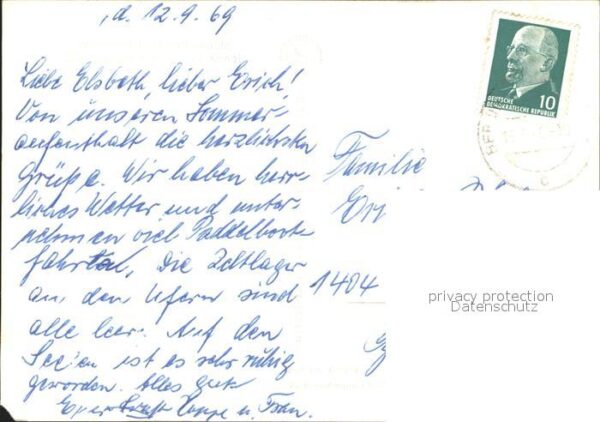 , d. 12.9.69
Liebe Elsbeth, lieber Erich!
Von unseren Sommer-
aufenthalt die herzlichsten
Grüße. Wir haben herr-
liches Wetter und unter-
nehmen viel Paddelboote
fahrten, Die Zeltlager
an den Ufern sind
alle leer. Auf den
See'en ist es sehr ruhig
geworden. Alles gute
Euer u. Frau.
DEUTSCHE
DEMOKRATISCHE REPUBLIK
10
Familie
1404
privacy protection
Datenschutz